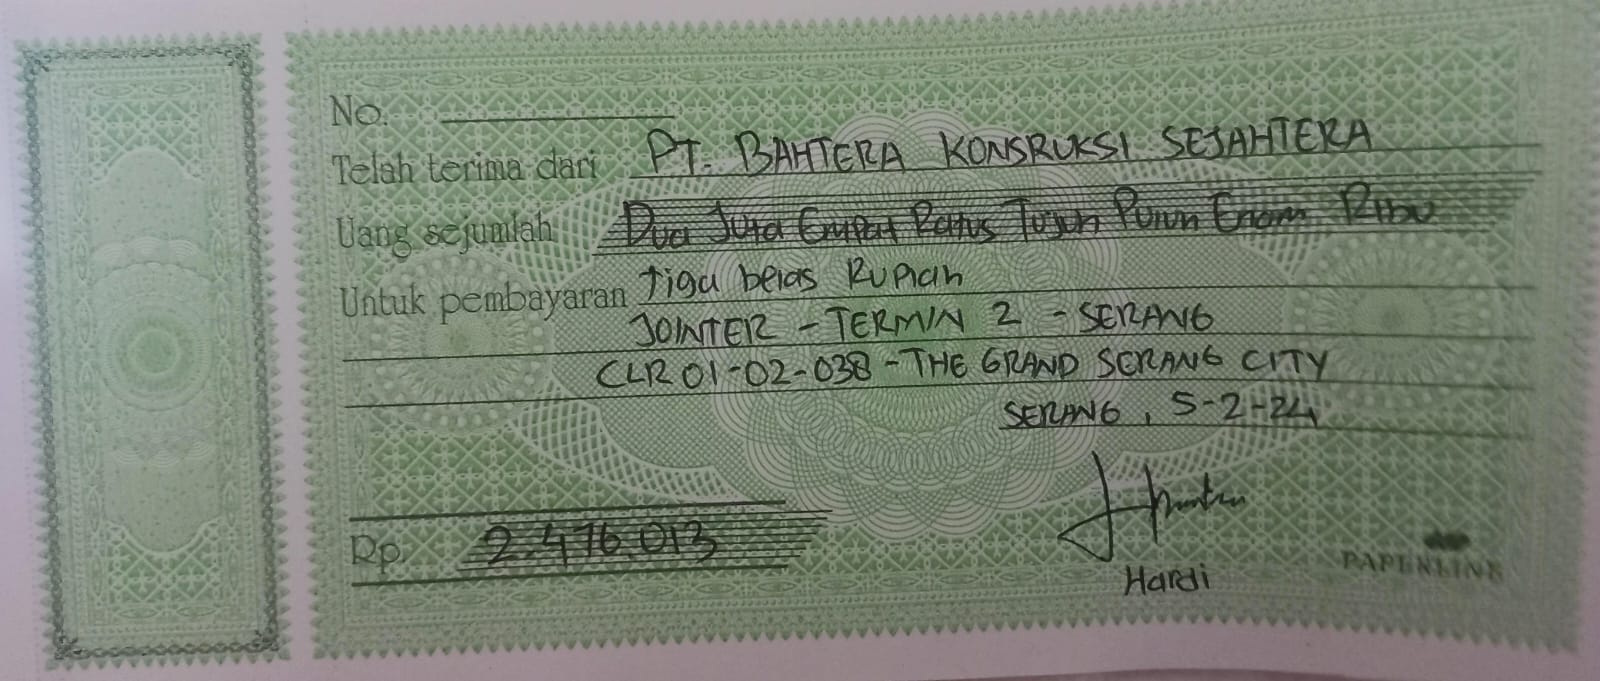 No.
Telah terima dari PT. BAHTERA KONSRUKSI SEJAHTERA
Uang sejumlah Dua Juta Empat Ratus Tujuh Puluh Enam Ribu
tiga belas Rupiah
Untuk pembayaran
JOINTER - TERMIN 2 - SERANG
CLR 01-02-038 - THE GRAND SERANG CITY
SERANG, 5-2-24
Rp. 2.476.013
Hardi
PAPERLINE